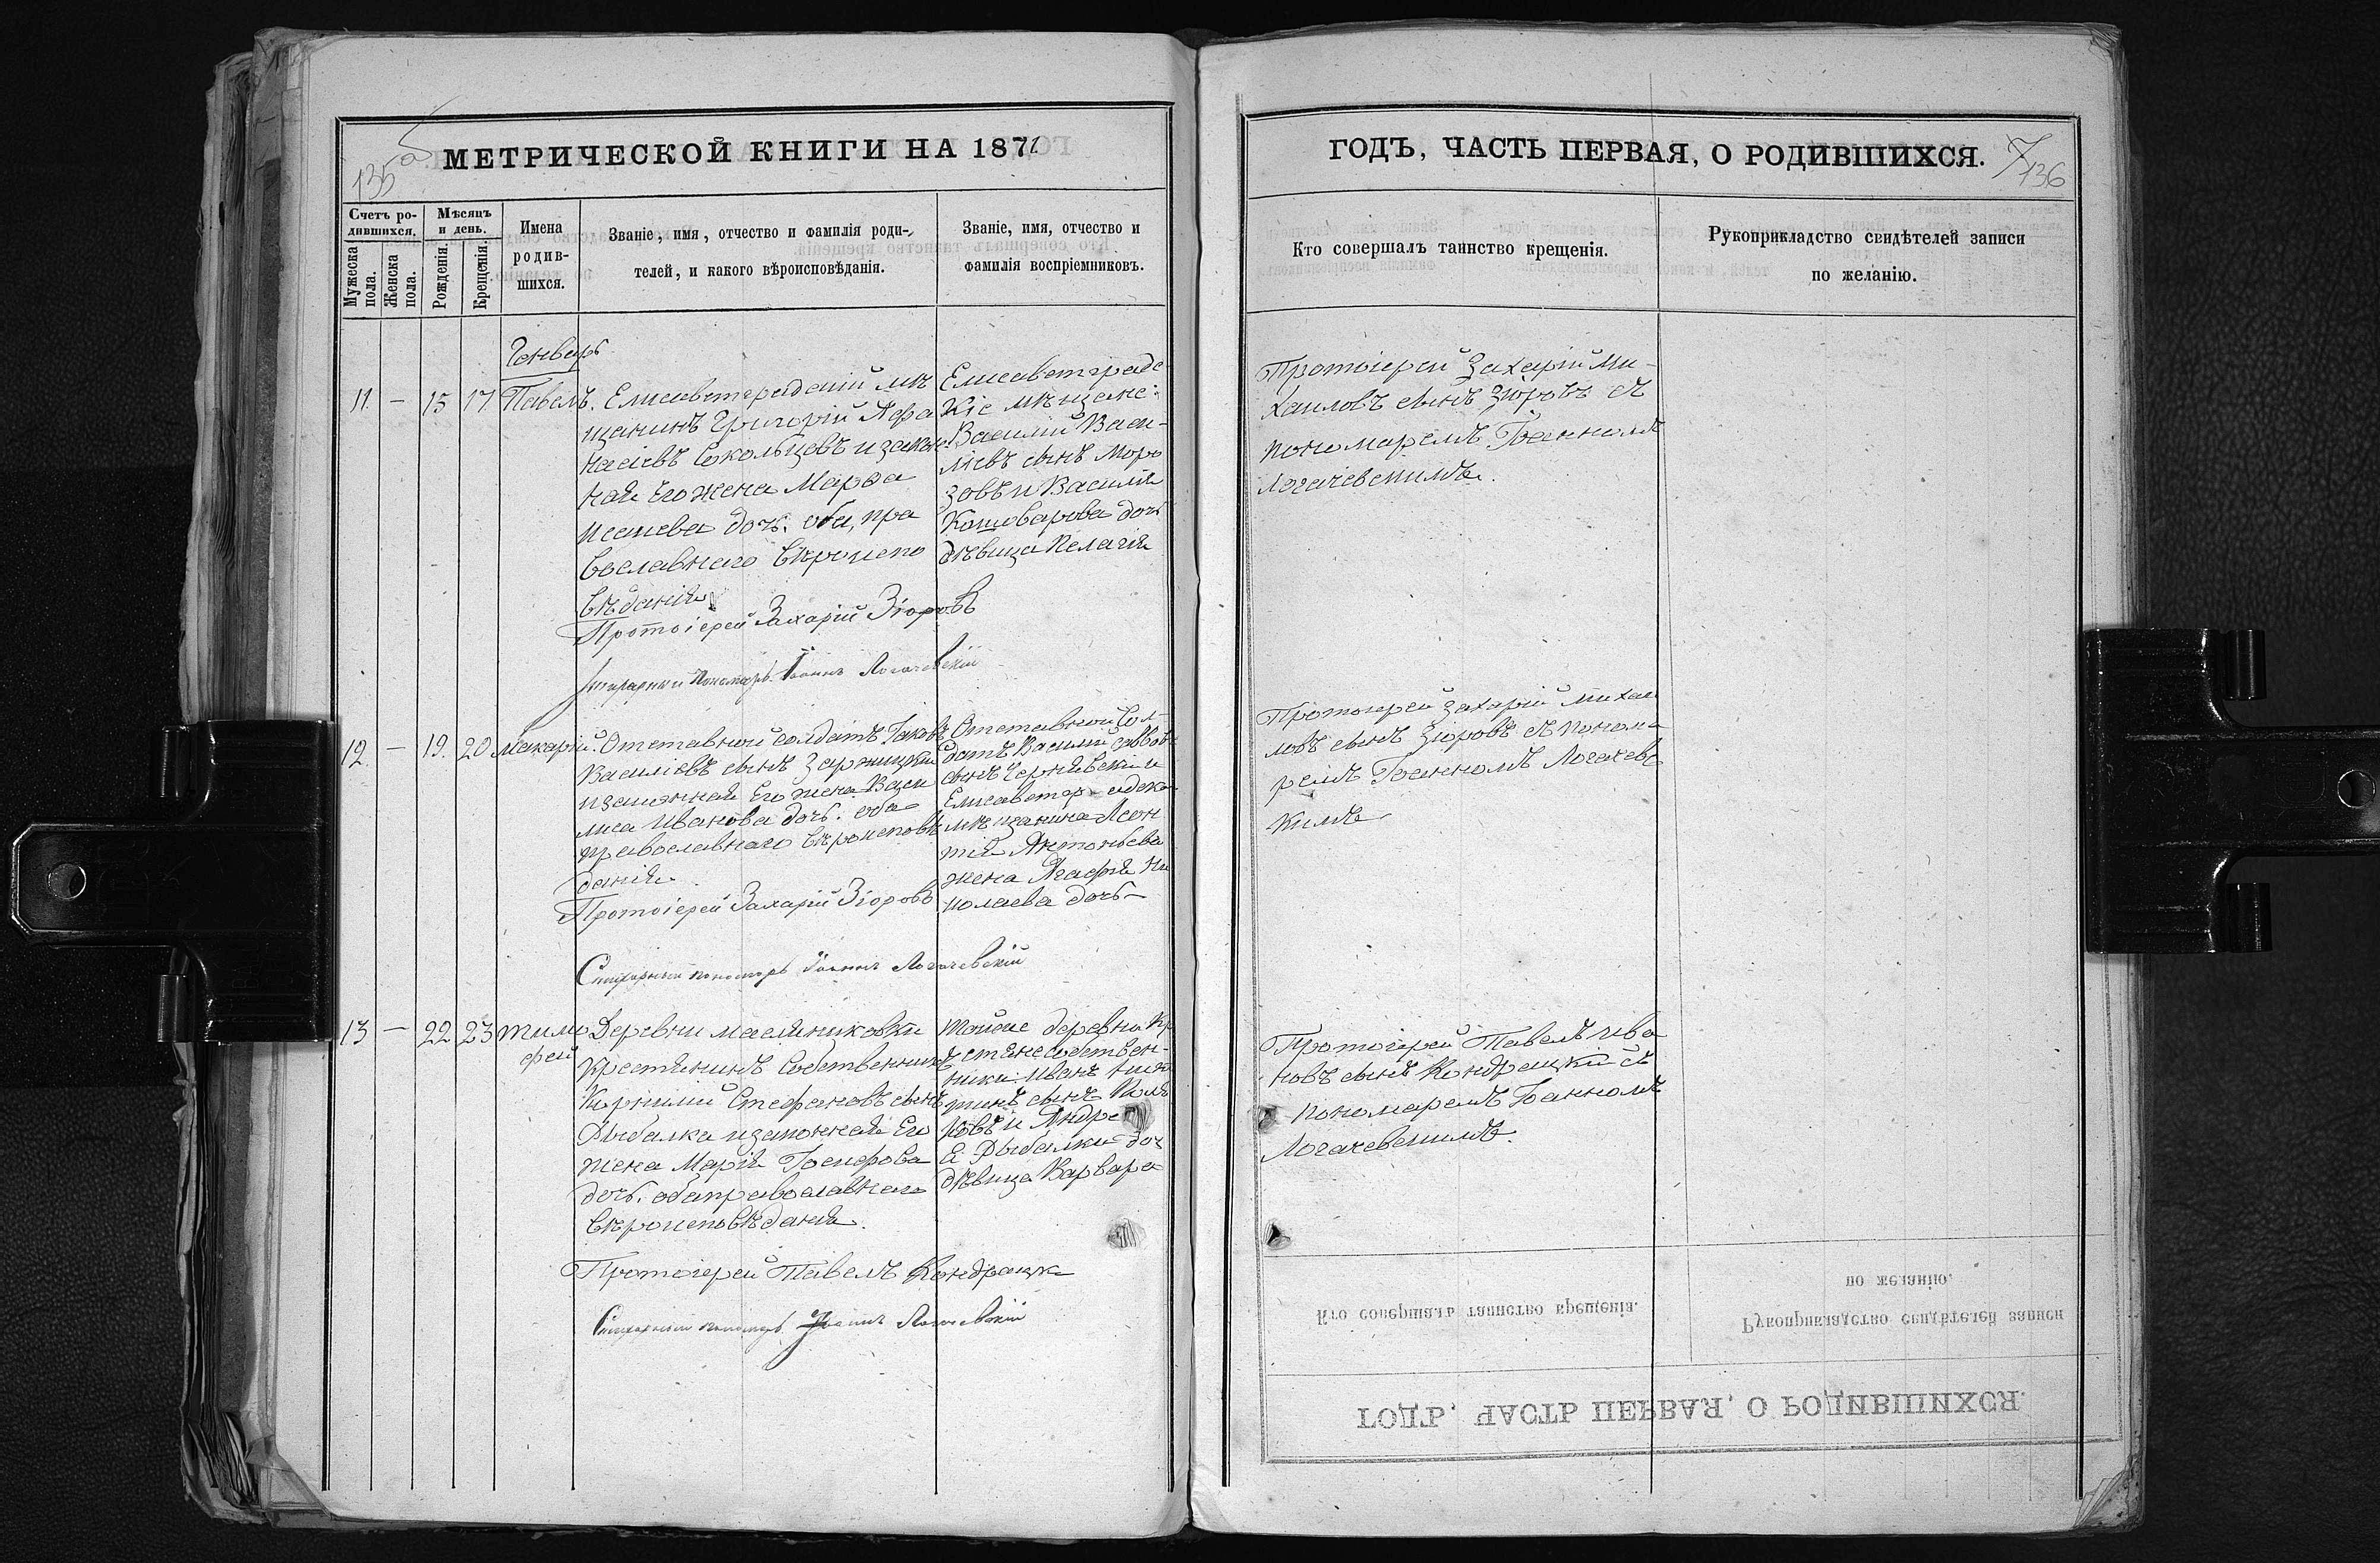 135 об
МЕТРИЧЕСКОЙ КНИГИ НА 1871
Счетъ ро-
дившихся.
Мужеска
пола.
Женска
пола.
Мѣсяцъ
и день.
Рожденія.
Крещенія.
Имена
родив-
шихся.
Званіе, имя, отчество и фамилія роди-
телей, и какого вѣроисповѣданія.
Званіе, имя, отчество и
фамилія воспріемниковъ.
Генварь
11. — 15 17 Павелъ.
Елисаветградскій мѣ
щанинъ Григорій Афа
насіевъ Сокольцовъ и закон
ная его жена Марѳа
Исаіева дочь. оба, пра
вославнаго вѣроиспо
вѣданія
Протоіерей Захарій Зіоровъ
Стихарный Пономарь Іоаннъ Логачевскій
Елисаветградс
кіе мѣщане:
Василій Васи-
ліевъ сынъ Моро
зовъ и Василія
Кашоварова дочь
дѣвица Пелагія
12. — 19. 20 Макарій.
Отставной солдатъ Іаковъ
Василіевъ сынъ Заржицкій
и законная Его жена Васи
лиса Иванова дочь. оба
православнаго вѣроисповѣ
данія
Протоіерей Захарій Зіоровъ
Стихарный пономарь Іоаннъ Логачевскій
Отставной Сол-
датъ Василій Саввовъ
сынъ Чернявскій и
Елисаветградска
мѣщанина Леон
тія Антоньева
жена Агафія Ни
колаева дочь
13 — 22 23 Тимо
фей
Деревни Масляниковки
Крестянинъ Собственникъ
Корнилій Стефановъ сынъ
Рыбалка и законная Его
жена Марія Іосифова
дочь. оба православнаго
вѣроисповѣданія.
Протоіерей Павелъ Кондрацк
Стихарный пономарь Іоаннъ Логачевскій
Тойже деревни Кр
естяне собствен-
ники Иванъ
сынъ
и Андре
Е Рыбалки доч
дѣвица Варвара
ГОДЪ, ЧАСТЬ ПЕРВАЯ, О РОДИВШИХСЯ.
7
136
Кто совершалъ таинство крещенія.
Рукоприкладство свидѣтелей записи
по желанію.
Протоіерей Захарій Ми-
хаиловъ сынъ Зіоровъ съ
пономаремъ Іоанномъ
Логачевскимъ.
Протоіерей Захарій Михаи
ловъ сынъ Зіоровъ съ понома
ремъ Іоанномъ Логачевс
кимъ
Протоіерей Павелъ Ива
новъ сынъ Кондрацкій съ
пономаремъ Іоанномъ
Логачевскимъ.
по желанію.
Кто совершалъ таинство крещенія.
Рукоприкладство свидѣтелей записи
ГОДЪ, ЧАСТЬ ПЕРВАЯ, О РОДИВШИХСЯ.